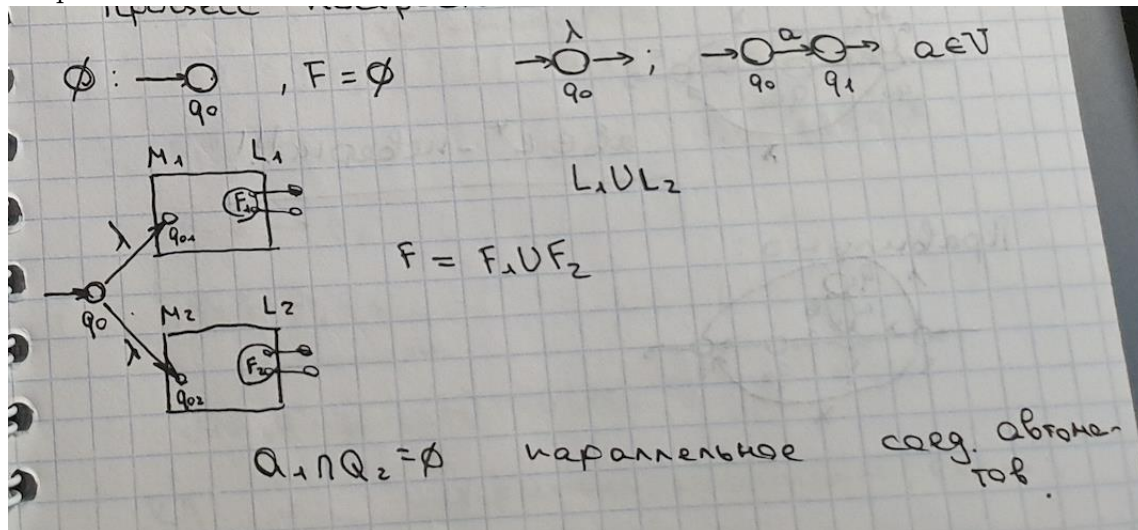 Процесс построен
∅: q0 , F = ∅ λ q0 ; a q0 q1 a∈V
M1 L1
F1
q01
λ
L1∪L2
F = F1∪F2
q0
M2 L2
λ
F2
q02
Q1∩Q2=∅ параллельное соед. автома-
тов.